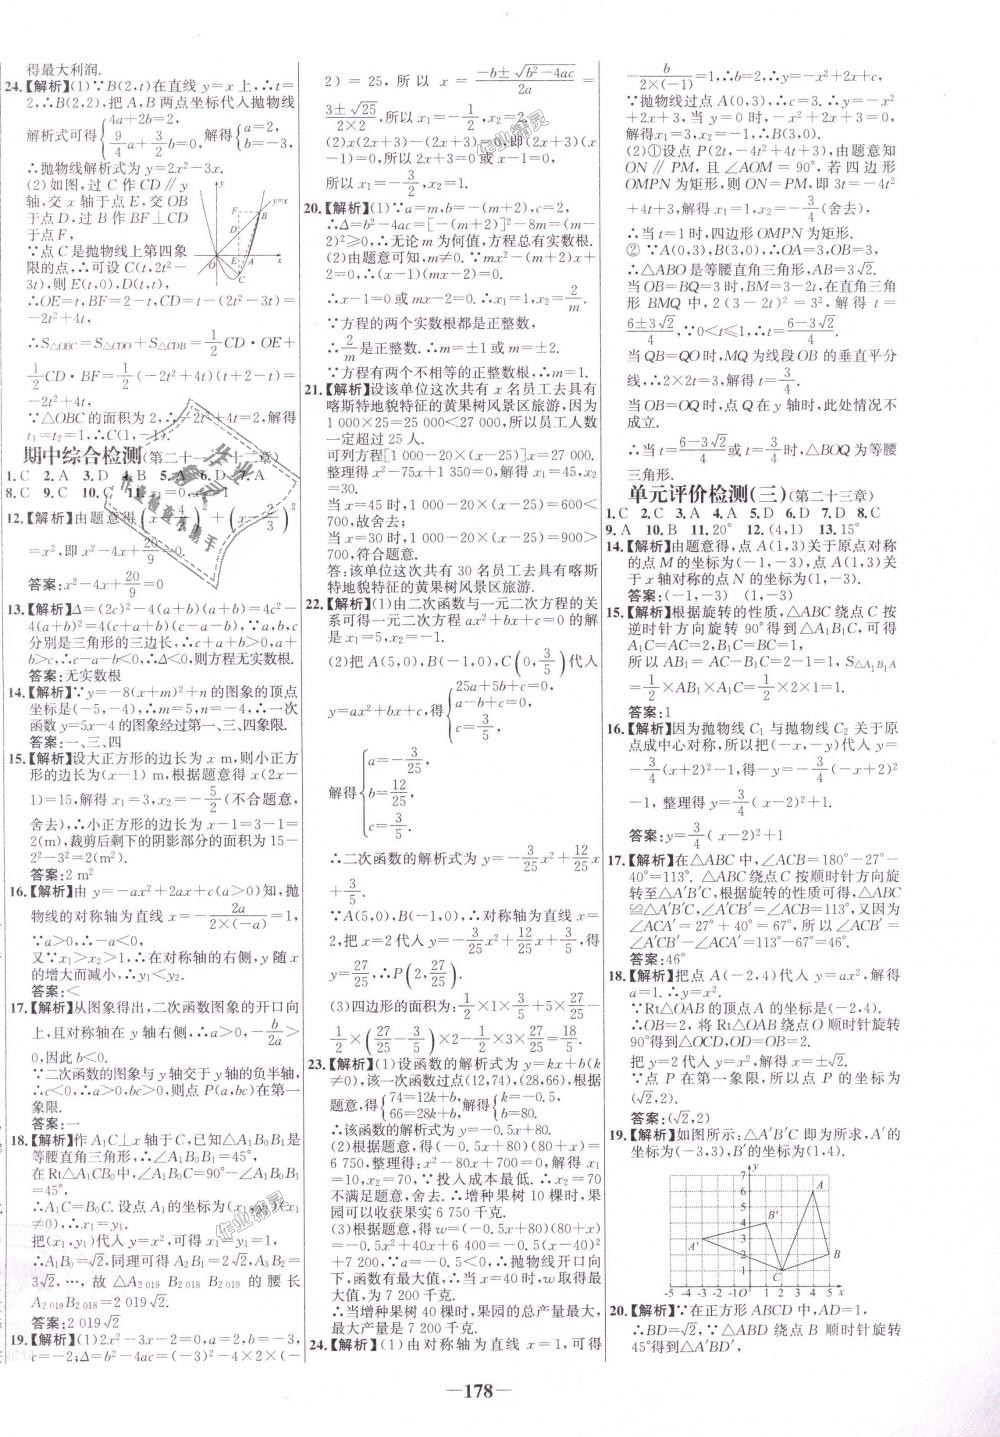 得最大利润.
24.【解析】(1)∵B(2,t)在直线 y=x 上,∴t=
2,∴B(2,2).把 A,B 两点坐标代入抛物线
解析式可得{4a+2b=2, 9/4 a+3/2 b=0,解得{a=2, b=-3,
∴抛物线解析式为 y=2x²-3x.
(2)如图,过 C 作 CD∥y
轴,交 x 轴于点 E,交 OB
于点 D,过 B 作 BF⊥CD
于点 F,
∵点 C 是抛物线上第四象
限的点,∴可设 C(t,2t²-
3t),则 E(t,0),D(t,t),
∴OE=t,BF=2-t,CD=t-(2t²-3t)=
-2t²+4t,
∴S△OBC=S△CDO+S△CDB=1/2 CD·OE+
1/2 CD·BF=1/2(-2t²+4t)(t+2-t)=
-2t²+4t,
∵△OBC 的面积为 2,∴-2t²+4t=2,解得
t₁=t₂=1,∴C(1,-1).
期中综合检测(第二十一、二十二章)
1.C 2.A 3.D 4.B 5.A 6.D 7.A
8.C 9.C 10.C 11.x₁=0,x₂=1
12.【解析】由题意得(x-4/3)²+(x-2/3)²
=x²,即 x²-4x+20/9=0.
答案:x²-4x+20/9=0
13.【解析】Δ=(2c)²-4(a+b)(a+b)=4c²-
4(a+b)²=4(c+a+b)(c-a-b),∵a,b,c
分别是三角形的三边长,∴c+a+b>0,a+
b>c,∴c-a-b<0,∴Δ<0,则方程无实数根.
答案:无实数根
14.【解析】∵y=-8(x+m)²+n 的图象的顶点
坐标是(-5,-4),∴m=5,n=-4,∴一次
函数 y=5x-4 的图象经过第一、三、四象限.
答案:一、三、四
15.【解析】设大正方形的边长为 x m,则小正方
形的边长为(x-1) m,根据题意得 x(2x-
1)=15,解得 x₁=3,x₂=-5/2(不合题意,
舍去),∴小正方形的边长为 x-1=3-1=
2(m),裁剪后剩下的阴影部分的面积为 15-
2²-3²=2(m²).
答案:2 m²
16.【解析】由 y=-ax²+2ax+c(a>0)知,抛
物线的对称轴为直线 x=-2a/2×(-a)=1,
∵a>0,∴-a<0,
又∵x₁>x₂>1,∴在对称轴的右侧,y 随 x
的增大而减小,∴y₁<y₂.
答案:<
17.【解析】从图象得出,二次函数图象的开口向
上,且对称轴在 y 轴右侧,∴a>0,-b/2a>
0,因此 b<0.
∵二次函数的图象与 y 轴交于 y 轴的负半轴,
∴c<0,∴a>0,bc>0,则点 P(a,bc)在第一
象限.
答案:一
18.【解析】作 A₁C⊥x 轴于 C,已知△A₁B₀B₁是
等腰直角三角形,∴∠A₁B₀B₁=45°,
在 Rt△A₁B₀C 中,∠A₁B₀C=90°-∠A₁B₀B₁
=45°,
∴A₁C=B₀C.设点 A₁的坐标为(x₁,y₁)(x₁
≠0),∴x₁=y₁.
把(x₁,y₁)代入 y=x²,可得 x₁=y₁=1,
∴A₁B₀=√2,同理可得 A₂B₁=2√2,A₃B₂=
3√2,…,故△A₂₀₁₉B₂₀₁₈B₂₀₁₉的腰长
A₂₀₁₉B₂₀₁₈=2 019√2.
答案:2 019√2
19.【解析】(1)2x²-3x-2=0,a=2,b=-3,
c=-2;Δ=b²-4ac=(-3)²-4×2×(-
2)=25,所以 x=-b±√b²-4ac/2a=
3±√25/2×2,x₁=-1/2,x₂=2.
(2)x(2x+3)-(2x+3)=0,即(2x+3)(x
-1)=0,所以 2x+3=0 或 x-1=0,
所以 x₁=-3/2,x₂=1.
20.【解析】(1)∵a=m,b=-(m+2),c=2,
∴Δ=b²-4ac=[-(m+2)]²-8m=(m-
2)²≥0,∴无论 m 为何值,方程总有实数根.
(2)由题意可知,m≠0.∵mx²-(m+2)x+
2=0,∴(x-1)(mx-2)=0,
∴x-1=0 或 mx-2=0.∴x₁=1,x₂=2/m.
∵方程的两个实数根都是正整数,
∴2/m是正整数.∴m=±1 或 m=±2.
∵方程有两个不相等的正整数根,∴m=1.
21.【解析】设该单位这次共有 x 名员工去具有
喀斯特地貌特征的黄果树风景区旅游,因为
1 000×25=25 000<27 000,所以员工人数
一定超过 25 人.
可列方程[1 000-20×(x-25)]x=27 000.
整理得 x²-75x+1 350=0,解得 x₁=45,x₂=30.
当 x=45 时,1 000-20×(x-25)=600<700,
故舍去;
当 x=30 时,1 000-20×(x-25)=900>
700,符合题意.
答:该单位这次共有 30 名员工去具有喀斯
特地貌特征的黄果树风景区旅游.
22.【解析】(1)由二次函数与一元二次方程的关
系可得一元二次方程 ax²+bx+c=0 的解
是 x₁=5,x₂=-1.
(2)把 A(5,0),B(-1,0),C(0,3/5)代入
y=ax²+bx+c,得{25a+5b+c=0, a-b+c=0, c=3/5,
解得{a=-3/25, b=12/25, c=3/5.
∴二次函数的解析式为 y=-3/25x²+12/25x
+3/5.
∵A(5,0),B(-1,0),∴对称轴为直线 x=
2,把 x=2 代入 y=-3/25x²+12/25x+3/5,得
y=27/25,∴P(2,27/25).
(3)四边形的面积为:1/2×1×3/5+5×27/25-
1/2×(27/25-3/5)×2-1/2×3×27/25=18/5.
23.【解析】(1)设函数的解析式为 y=kx+b(k
≠0),该一次函数过点(12,74),(28,66),根据
题意,得{74=12k+b, 66=28k+b,解得{k=-0.5, b=80.
∴该函数的解析式为 y=-0.5x+80.
(2)根据题意,得(-0.5x+80)(80+x)=
6 750,整理得,x²-80x+700=0,解得 x₁
=10,x₂=70,∵投入成本最低.∴x₂=70
不满足题意,舍去.∴增种果树 10 棵时,果
园可以收获果实 6 750千克.
(3)根据题意,得 w=(-0.5x+80)(80+x)
=-0.5x²+40x+6 400=-0.5(x-40)²
+7 200,∵a=-0.5<0,∴抛物线开口向
下,函数有最大值,∴当 x=40 时,w 取得最
大值为 7 200.
∴当增种果树 40 棵时,果园的总产量最大,
最大产量是 7 200 千克.
24.【解析】(1)由对称轴为直线 x=1,可得
-b/2×(-1)=1,∴b=2,∴y=-x²+2x+c.
∵抛物线过点 A(0,3),∴c=3.∴y=-x²+
2x+3,当 y=0 时,-x²+2x+3=0.
解得x₁=-1,x₂=3,∴B(3,0).
(2)①设点 P(2t,-4t²+4t+3),由题意知
ON∥PM,且∠AOM=90°,若四边形
OMPN 为矩形,则 ON=PM,即 3t=-4t²
+4t+3,解得 t₁=1,t₂=-3/4(舍去),
∴当 t=1 时,四边形 OMPN 为矩形.
②∵A(0,3),B(3,0),∴OA=3,OB=3,
∴△ABO是等腰直角三角形,∠ABO=45°.
当 OB=BQ=3 时,BM=3-2t,在直角三角
形 BMQ 中,2(3-2t)²=3²,解得 t=
6±3√2/4,∵0<t≤1,∴t=6-3√2/4.
当 QB=QO 时,MQ 为线段 OB 的垂直平分
线,∴2×2t=3,解得 t=3/4.
当 OB=OQ 时,点 Q 在 y 轴时,此处情况不
成立.
∴当 t=6-3√2/4或3/4时,△BOQ 为等腰
三角形.
单元评价检测(三)(第二十三章)
1.C 2.C 3.A 4.A 5.D 6.D 7.D 8.C
9.A 10.B 11.20° 12.(4,1) 13.15°
14.【解析】由题意得,点 A(1,3)关于原点对称
的点 M 的坐标为(-1,-3),点 A(1,3)关
于 x 轴对称的点 N 的坐标为(1,-3).
答案:(-1,-3) (1,-3)
15.【解析】根据旋转的性质,△ABC 绕点 C 按
逆时针方向旋转 90°得到△A₁B₁C,可得
A₁C=AC=2,B₁C=BC=1,
所以 AB₁=AC-B₁C=2-1=1,S△A₁B₁A
=1/2×AB₁×A₁C=1/2×2×1=1.
答案:1
16.【解析】因为抛物线 C₁ 与抛物线 C₂ 关于原
点成中心对称,所以把(-x,-y)代入 y=
-3/4(x+2)²-1,得-y=-3/4(-x+2)²
-1,整理得 y=3/4(x-2)²+1
答案:y=3/4(x-2)²+1
17.【解析】在△ABC 中,∠ACB=180°-27°-
40°=113°.△ABC 绕点 C 按顺时针方向旋
转至△A′B′C,根据旋转的性质可得,△ABC
≌△A′B′C,∠A′CB′=∠ACB=113°,又因为
∠ACA′=27°+40°=67°,所以∠ACB′=
∠A′CB′-∠ACA′=113°-67°=46°.
答案:46°
18.【解析】把点 A(-2,4)代入 y=ax²,解得
a=1.∴y=x²,
∵Rt△OAB 的顶点 A 的坐标是(-2,4),
∴OB=2,将 Rt△OAB 绕点 O 顺时针旋转
90°得到△OCD,OD=OB=2,
把 y=2 代入 y=x²,解得 x=±√2.
∵点 P 在第一象限,所以点 P 的坐标为
(√2,2).
答案:(√2,2)
19.【解析】如图所示:△A′B′C 即为所求,A′的
坐标为(-3,3),B′的坐标为(1,4).
20.【解析】∵在正方形 ABCD 中,AD=1,
∴BD=√2,∵△ABD 绕点 B 顺时针旋转
45°得到△A′BD′,
—178—